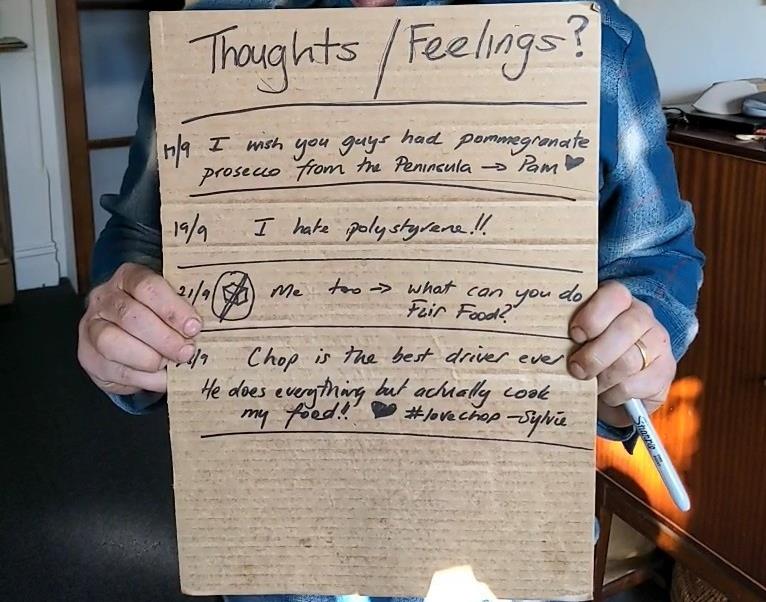 Thoughts / Feelings?
17/9 I wish you guys had pommegranate
prosecco from the Peninsula → Pam ♥
19/9 I hate polystyrene!!
21/9 Me too → what can you do
Fair Food?
/9 Chop is the best driver ever
He does everything but actually cook
my food!! ♥ #lovechop -Sylvie
Sharpie